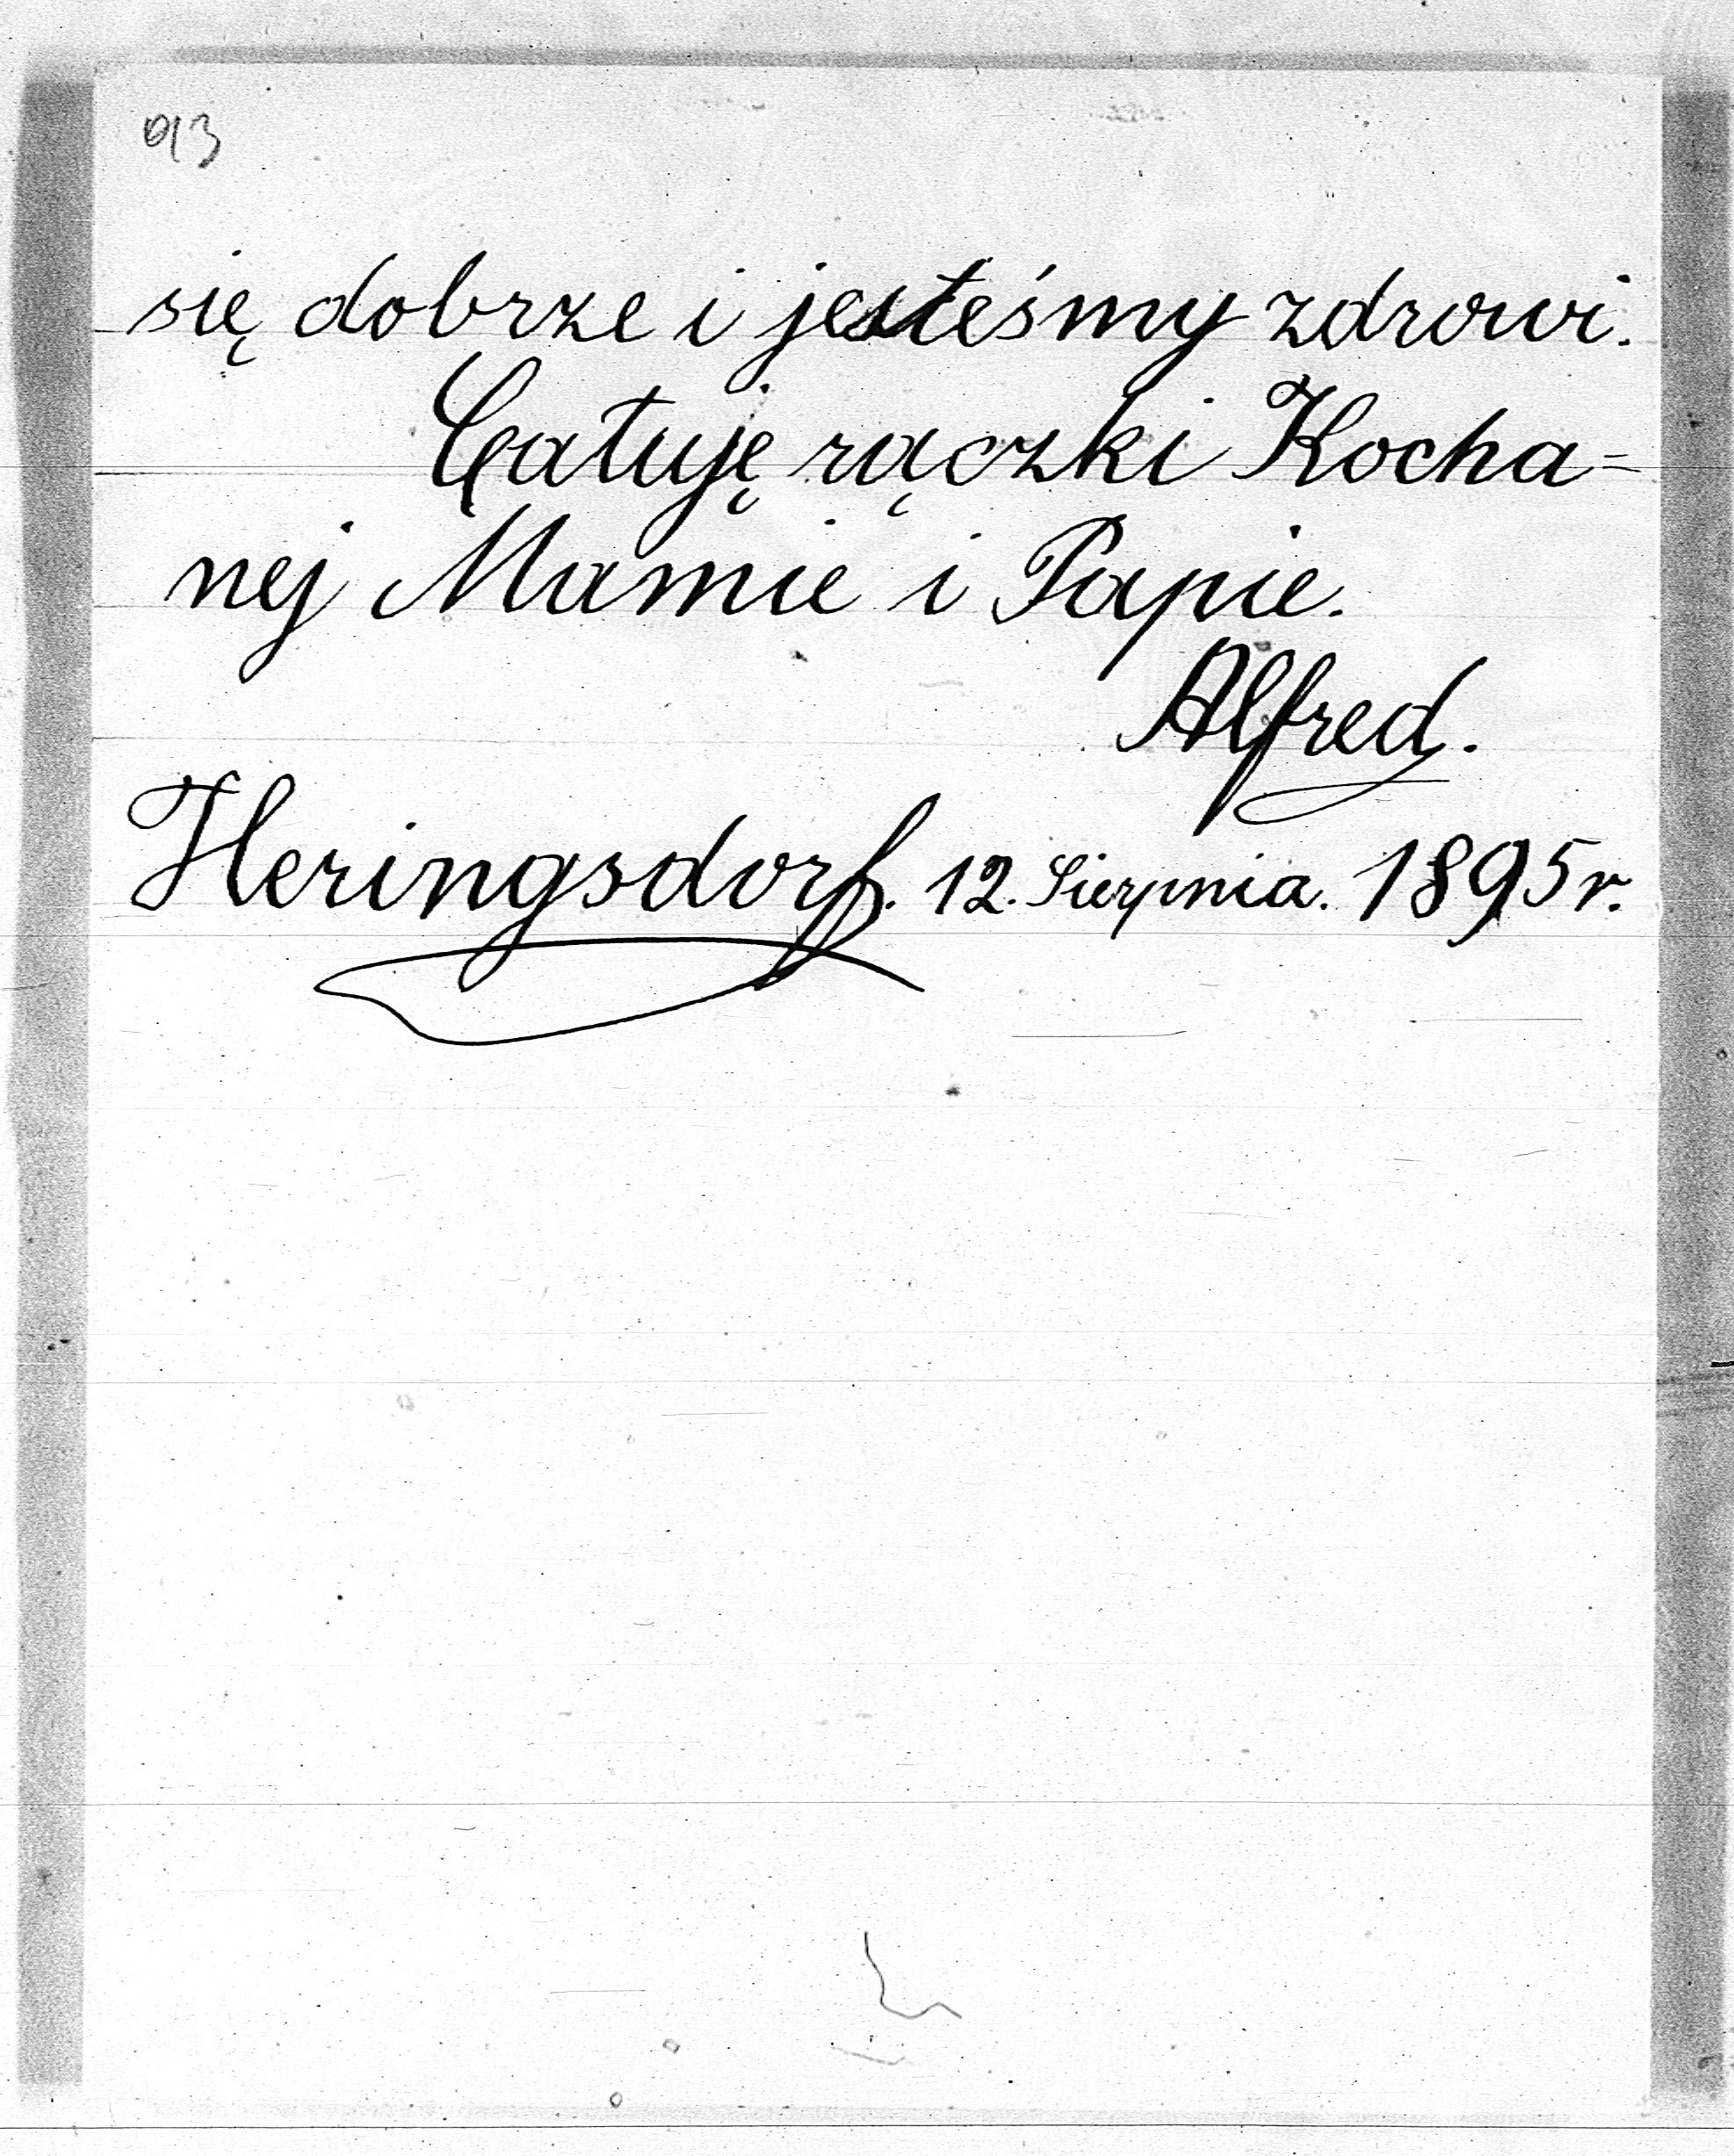 93
się dobrze i jesteśmy zdrowi.
Całuję rączki Kocha=
nej Mamie i Papie.
Alfred.
Heringsdorf. 12. Sierpnia. 1895 r.